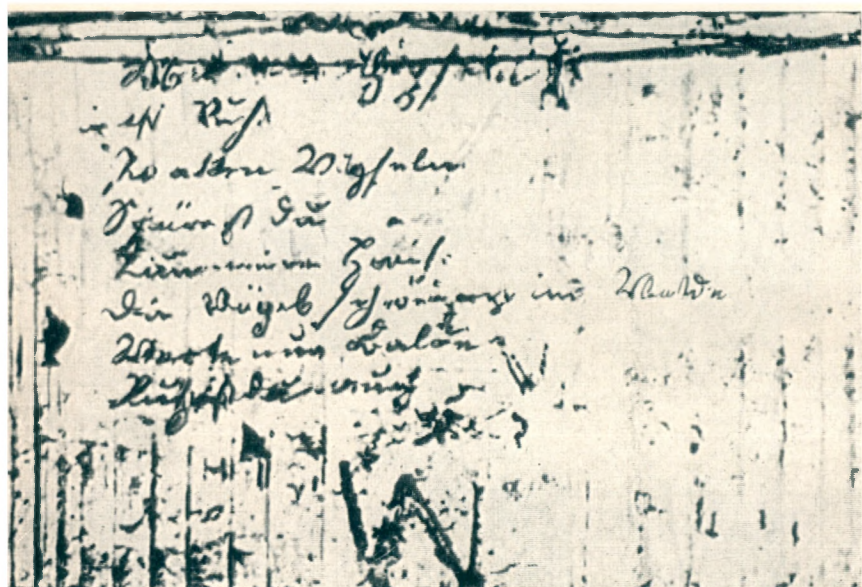 Über allen Gipfeln
ist Ruh
In allen Wipfeln
Spürest du
Kaum einen Hauch.
Die Vögel schweigen im Walde
Warte nur balde
Ruhest du auch